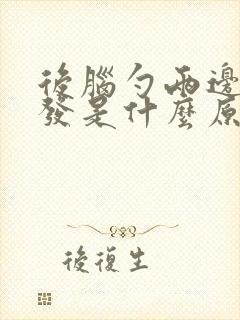 後腦勺兩邊
發是什麼原
後復生